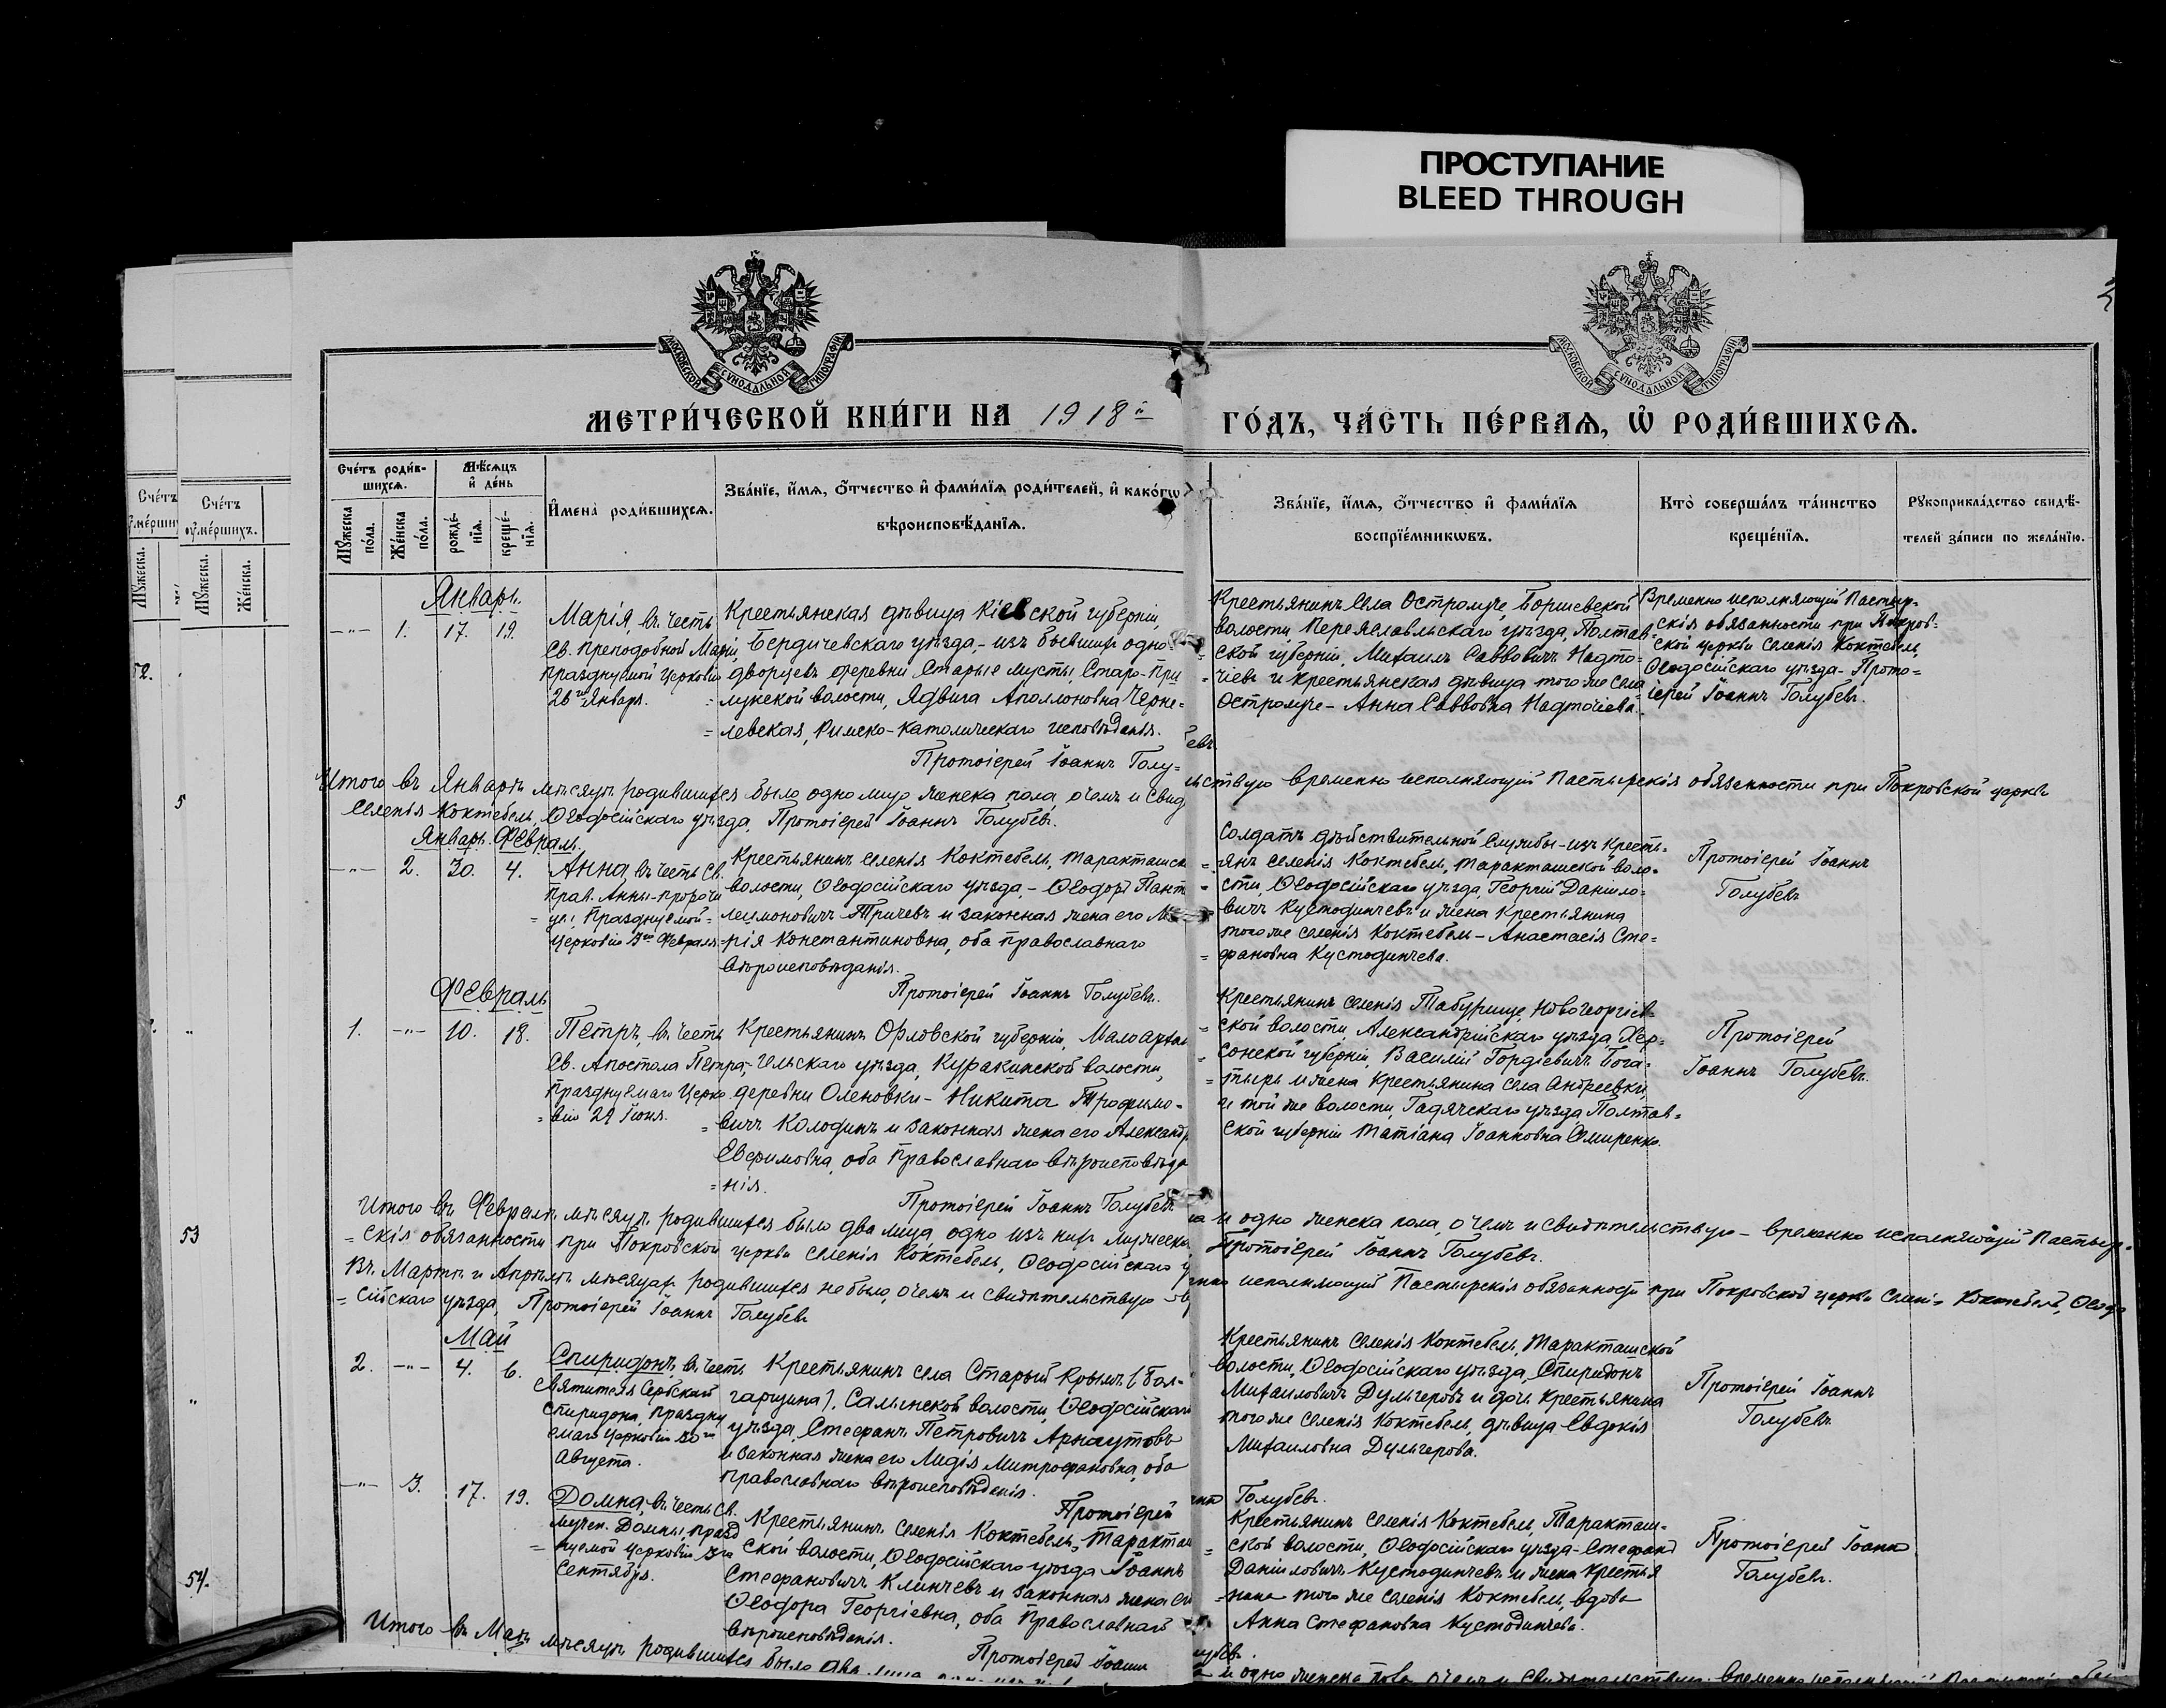 ПРОСТУПАНИЕ
BLEED THROUGH
МОСКОВСКОЙ СѴНОДАЛЬНОЙ ТИПОГРАФІИ
МОСКОВСКОЙ СѴНОДАЛЬНОЙ ТИПОГРАФІИ
МЕТРИ́ЧЕСКОЙ КНИ́ГИ НА 1918й
ГО́ДЪ, ЧА́СТЬ ПЕ́РВАѦ, Ѽ РОДИ́ВШИХСѦ.
Сче́тъ
Сче́тъ
оуме́ршихъ.
Мꙋ́жеска.
Мꙋ́жеска.
Же́нска.
52.
5
53
54.
Сче́тъ роди́в-
шихсѧ.
Мꙋ́жеска по́ла.
Же́нска по́ла.
Мѣ́сѧцъ
и҆ де́нь
рожде́-нїѧ.
креще́-нїѧ.
И҆мена̀ роди́вшихсѧ.
Зва́нїе, и҆́мѧ, ѻ҆́тчество и҆ фами́лїѧ роди́телей, и҆ како́гѡ
вѣроисповѣ́данїѧ.
Зва́нїе, и҆́мѧ, ѻ҆́тчество и҆ фами́лїѧ
воспрїе́мникѡвъ.
Кто̀ соверша́лъ та́инство
креще́нїѧ.
Рꙋкоприкла́дство свидѣ́-
телей за́писи по жела́нїю.
Январь.
-"- 1. 17. 19.
Марія, въ честь
Св. Преподобной Маріи,
празднуемой Церковію
26го Января.
Крестьянская дѣвица Кіевской губерніи,
Бердичевскаго уѣзда, - изъ бывшихъ одно-
дворцевъ деревни Старые Мусты, Старо-При
=лукской волости, Ядвига Аполлоновна Черне=
=левская, Римско-Католическаго исповѣданія.
Протоіерей Іоаннъ Голу=
бевъ.
Крестьянинъ села Остролучье, Боришевской
волости, Переяславльскаго уѣзда, Полтав=
=ской губерніи, Михаилъ Саввовичъ Надто=
=чіевъ и крестьянская дѣвица того же села
Остролучье - Анна Саввовна Надточіева.
Временно исполняющій Пастыр=
скія обязанности при Покров=
ской церкви селенія Коктебель,
Ѳеодосійскаго уѣзда - Прото=
іерей Іоаннъ Голубевъ.
Итого въ Январѣ мѣсяцѣ родившихся было одно лицо женска пола, о чемъ и свид
ѣльствую временно исполняющій Пастырскія обязанности при Покровской церкви
селенія Коктебель, Ѳеодосійскаго уѣзда, Протоіерей Іоаннъ Голубевъ.
Январь. Февраль.
-"- 2. 30. 4.
Анна, въ честь Св.
Прав. Анны-пророчи
=цы, Празднуемой=
Церковію 3го Февраля.
Крестьянинъ селенія Коктебель, Таракташск
волости, Ѳеодосійскаго уѣзда, - Ѳеодоръ Пант
=леимоновичъ Тричевъ и законная жена его Ма
=рія Константиновна, оба православнаго
вѣроисповѣданія.
Протоіерей Іоаннъ Голубевъ.
Солдатъ дѣйствительной службы - изъ кресть=
=янъ селенія Коктебель, Таракташской воло=
=сти, Ѳеодосійскаго уѣзда, Георгій Даніило=
вичъ Кустодинчевъ и жена крестьянина
того же селенія Коктебель - Анастасія Сте=
=фановна Кустодинчева.
Протоіерей Іоаннъ
Голубевъ
Февраль
1. -"- 10. 18.
Петръ, въ честь
Св. Апостола Петра,
празднуемаго Церко
=вію 29 Іюня.
Крестьянинъ Орловской губерніи, Малоархан
=гельскаго уѣзда, Куракинской волости,
деревни Оленовки - Никита Трофимо=
=вичъ Колодинъ и законная жена его Александр
Евфимовна, оба православнаго вѣроисповѣда
=нія.
Протоіерей Іоаннъ Голубевъ.
Крестьянинъ селенія Табурище, Новогеоргіев=
=ской волости, Александрійскаго уѣзда, Хер=
=сонской губерніи, Василій Гордіевичъ Бога=
=тырь и жена крестьянина села Андреевки,
и той же волости, Гадячскаго уѣзда, Полтав=
ской губерніи Татіана Іоанновна Омиренко.
Протоіерей
Іоаннъ Голубевъ.
Итого въ Февралѣ мѣсяцѣ родившихся было два лица, одно изъ нихъ мужеска
ла и одно женска пола, о чемъ и свидѣтельствую - временно исполняющій Пастыр=
=скія обязанности при Покровской церкви селенія Коктебель, Ѳеодосійскаго у
Протоіерей Іоаннъ Голубевъ.
Въ Мартѣ и Апрѣлѣ мѣсяцахъ родившихся не было, о чемъ и свидѣтельствую - в
енно исполняющій Пастырскія обязанности при Покровской церкви селенія Коктебель, Ѳеодо
=сійскаго уѣзда, Протоіерей Іоаннъ Голубевъ
Май
2. -"- 4. 6.
Спиридонъ, въ честь
Святителя Сербскаго
Спиридона, праздну
емаго Церковію 30го
Августа.
Крестьянинъ села Старый Крымъ (Бол-
гарщина), Салынской волости, Ѳеодосійскаго
уѣзда, Стефанъ Петровичъ Арнаутовъ
и законная жена его Лидія Митрофановна, оба
православнаго вѣроисповѣданія.
Протоіерей
Голубевъ.
Крестьянинъ селенія Коктебель, Таракташской
волости, Ѳеодосійскаго уѣзда, Спиридонъ
Михаиловичъ Дульгеровъ и дочь крестьянина
того же селенія Коктебель, дѣвица Евдокія
Михаиловна Дульгерова.
Протоіерей Іоаннъ
Голубевъ.
-"- 3. 17. 19.
Домна, въ честь Св.
Мучен. Домны, празд
=нуемой Церковію 3го
Сентября.
Крестьянинъ селенія Коктебель, Таракташ
ской волости, Ѳеодосійскаго уѣзда Іоаннъ
Стефановичъ Клинчевъ и законная жена его
Ѳеодора Георгіевна, оба православнаго
вѣроисповѣданія.
Протоіерей Іоаннъ
Крестьянинъ селенія Коктебель, Таракташ=
=ской волости, Ѳеодосійскаго уѣзда - Стефанъ
Даніиловичъ Кустодинчевъ и жена крестья
=нина того же селенія Коктебель, вдова
Анна Стефановна Кустодинчева.
Протоіерей Іоаннъ
Голубевъ.
Итого въ Маѣ мѣсяцѣ родившихся было два лица
и одно женска пола, о чемъ и свидѣтельствую. Временно исполняющій